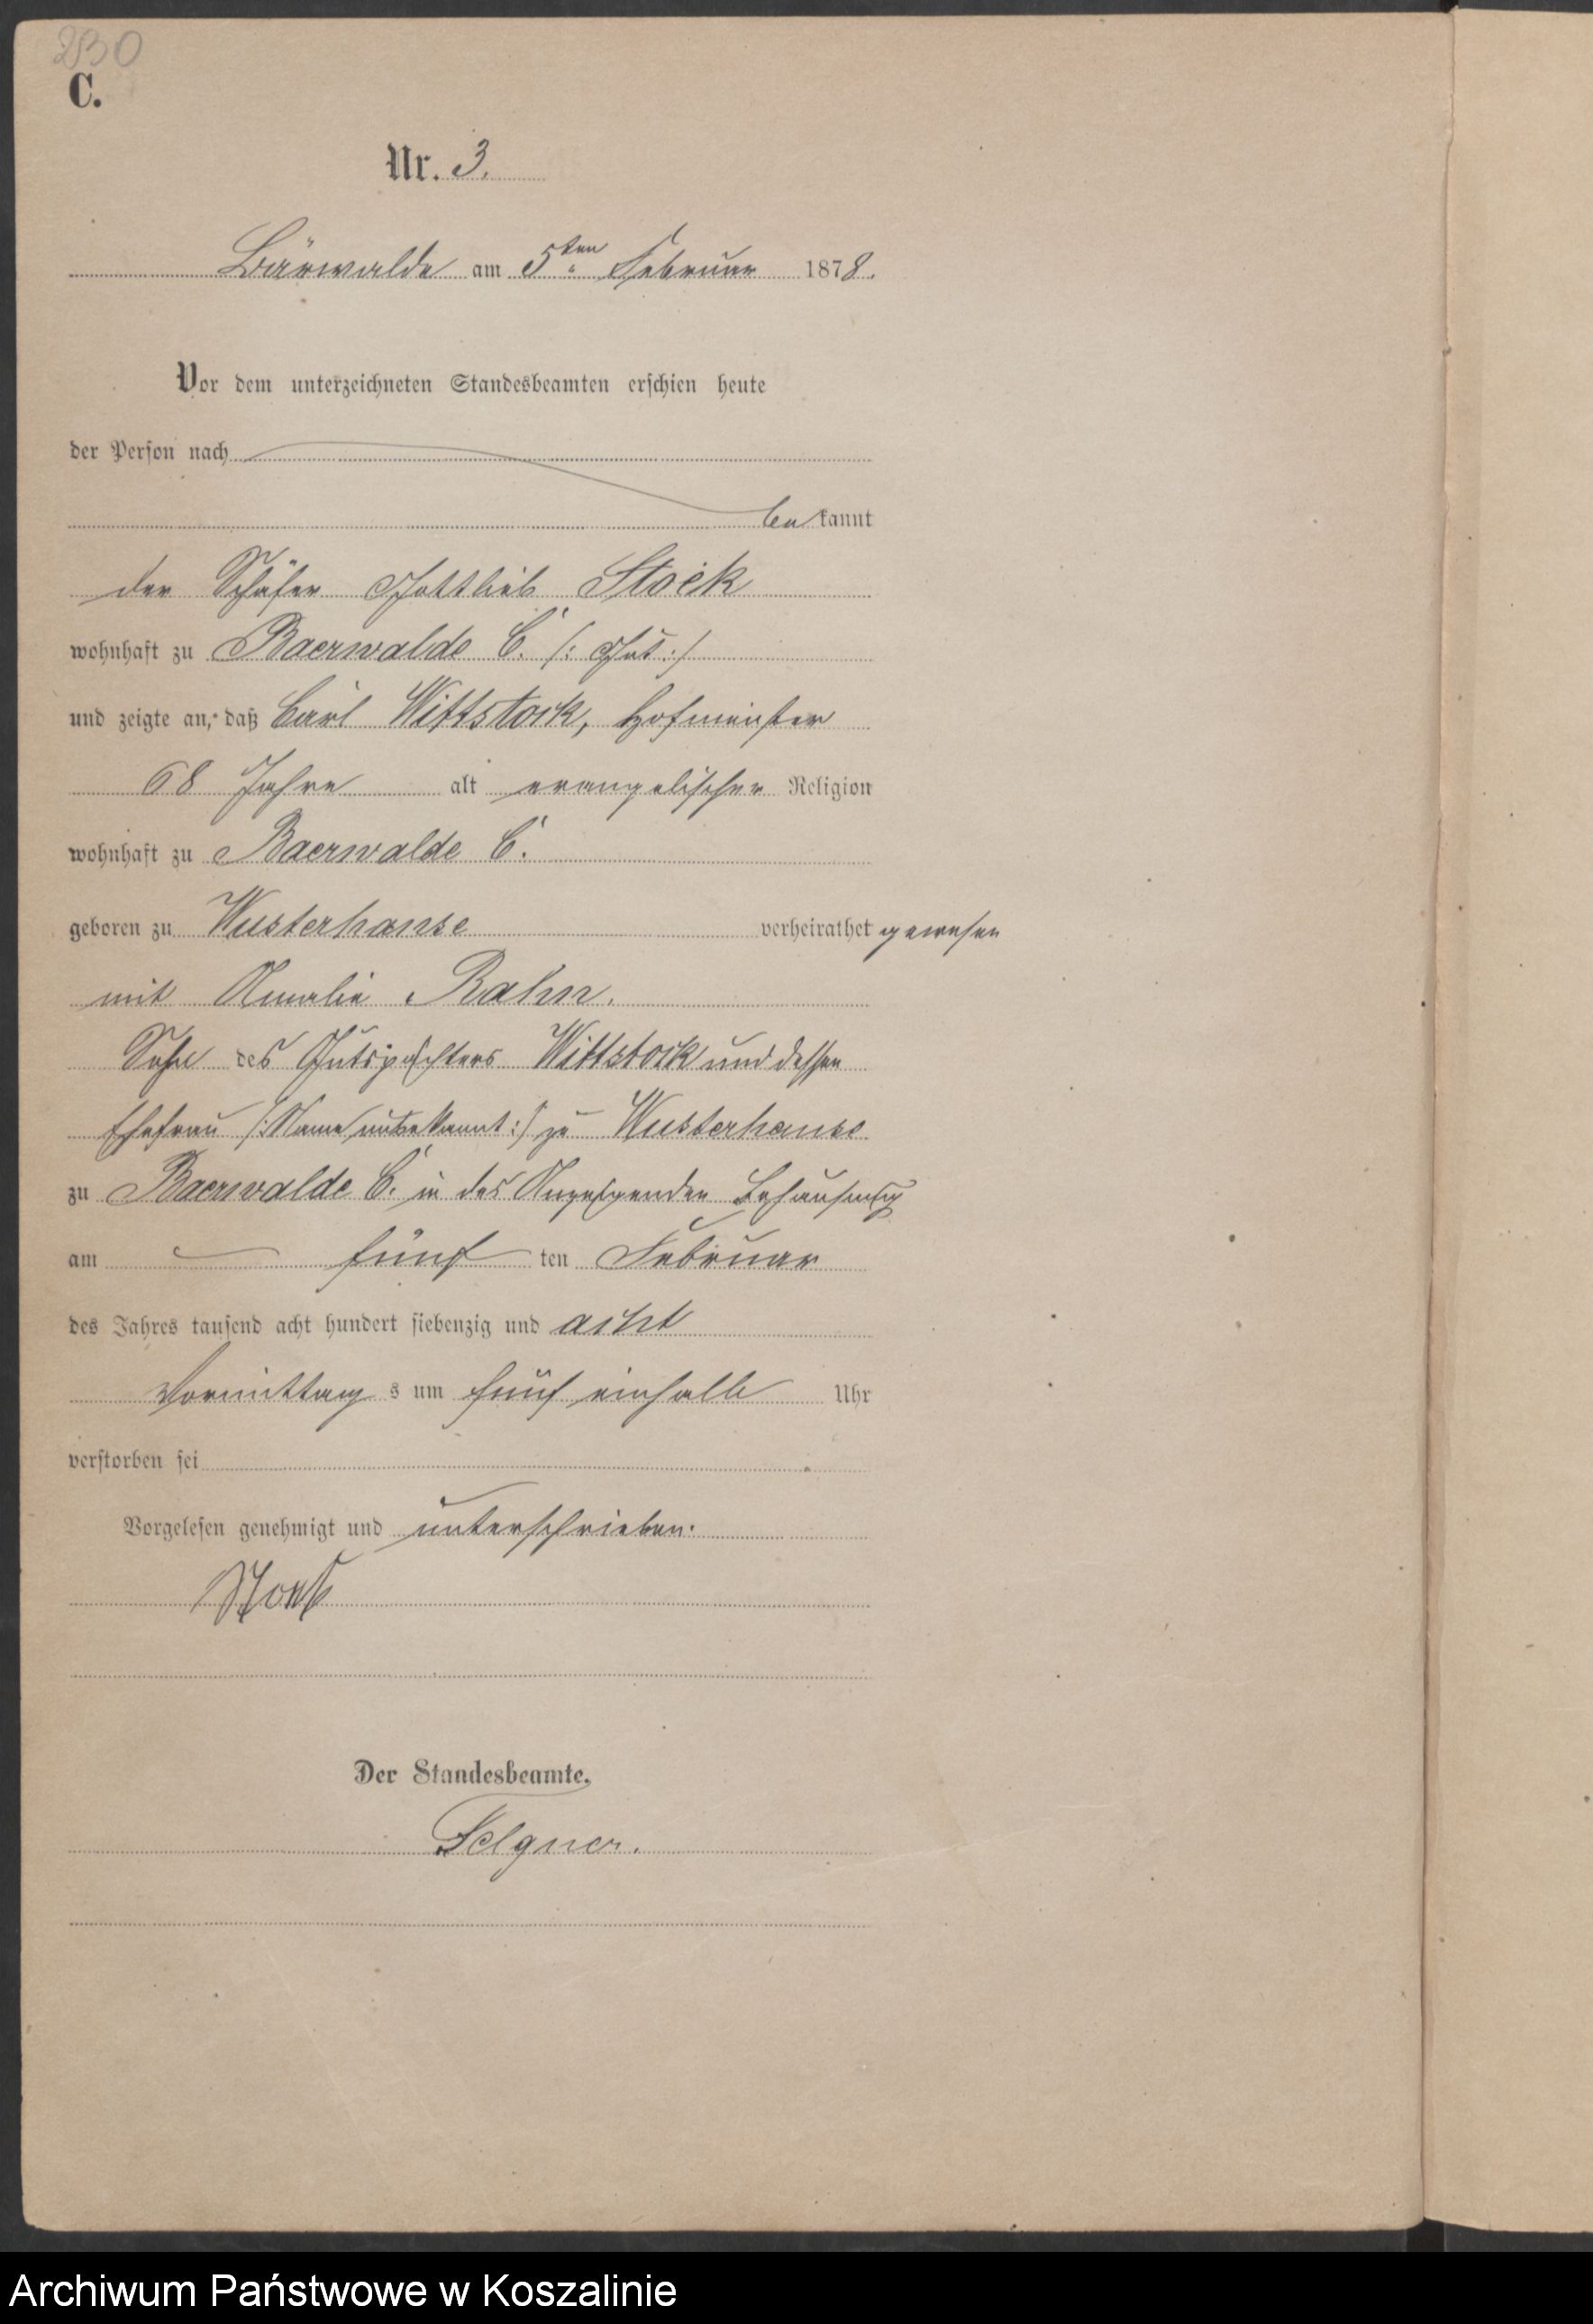 230
C.
Nr. 3.
Bärwalde am 5ten Februar 1878.
Vor dem unterzeichneten Standesbeamten erschien heute
der Person nach
bekannt
der Schäfer Gottlieb Stock
wohnhaft zu Baerwalde C. /: Gut :/
und zeigte an, daß Carl Wittstock, Hofmeister
68 Jahre alt evangelischer Religion
wohnhaft zu Baerwalde C.
geboren zu Wusterhanse verheirathet gewesen
mit Amalie Rahn.
Sohn des Gutspächters Wittstock und dessen
Ehefrau /: Name unbekannt :/ zu Wusterhanse
zu Baerwalde C. in des Anzeigenden Behausung
am fünf ten Februar
des Jahres tausend acht hundert siebenzig und acht
Vormittag s um fünf einhalb Uhr
verstorben sei
Vorgelesen genehmigt und unterschrieben.
Stock
Der Standesbeamte.
Felgner.
Archiwum Państwowe w Koszalinie